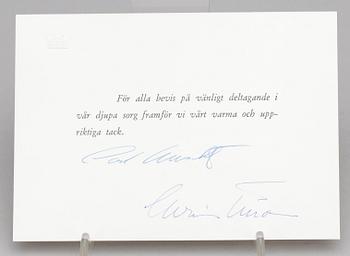 För alla bevis på vänligt deltagande i
vår djupa sorg framför vi vårt varma och upp-
riktiga tack.